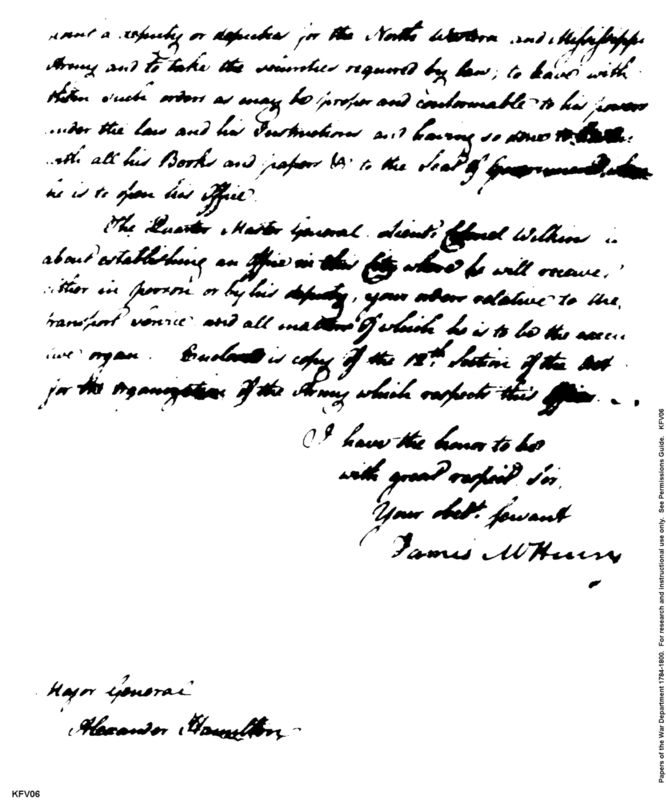 a deputy or deputies for the North Western and Mississippi
Army and to take the securities required by law; to leave with
them such orders as may be proper and conformable to his powers
under the law and his Instructions and having so done to
with all his Books and papers &c to the Seat of Government, where
he is to open his Office.
The Quarter Master General Lieut. Colonel Wilkins is
about establishing an Office in this City where he will receive,
either in person or by his deputy, your orders relative to the
transport service and all matters of which he is to be the execu
tive organ. Enclosed is copy of the 12th. Section of the Act
for the organization of the Army which respects this Officer.
I have the honor to be
with great respect Sir,
Your obet. Servant
James McHenry
Major General
Alexander Hamilton
KFV06
Papers of the War Department 1784-1800. For research and instructional use only. See Permissions Guide. KFV06